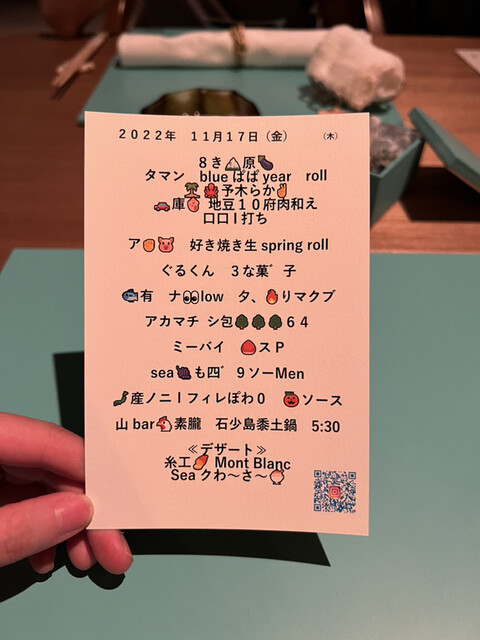 2022年 11月17日（金） （木）
8き🍙原🍆
タマン blue ばば year roll
🌴🍁予木らか✌
🚗庫🍑 地豆10府肉和え
口口I打ち
ア✊🐷 好き焼き生 spring roll
ぐるくん 3な菓゛子
🐟有 ナ👀low 夕、🔥りマクブ
アカマチ シ包🌳🌳🌳64
ミーバイ 🌰スP
sea🍇も四゛9ソーMen
産ノニーフィレぽわ0 🍅ソース
山 bar🐔素朧 石少島黍土鍋 5:30
≪デザート≫
糸工🍠 Mont Blanc
Sea クわ～さ～